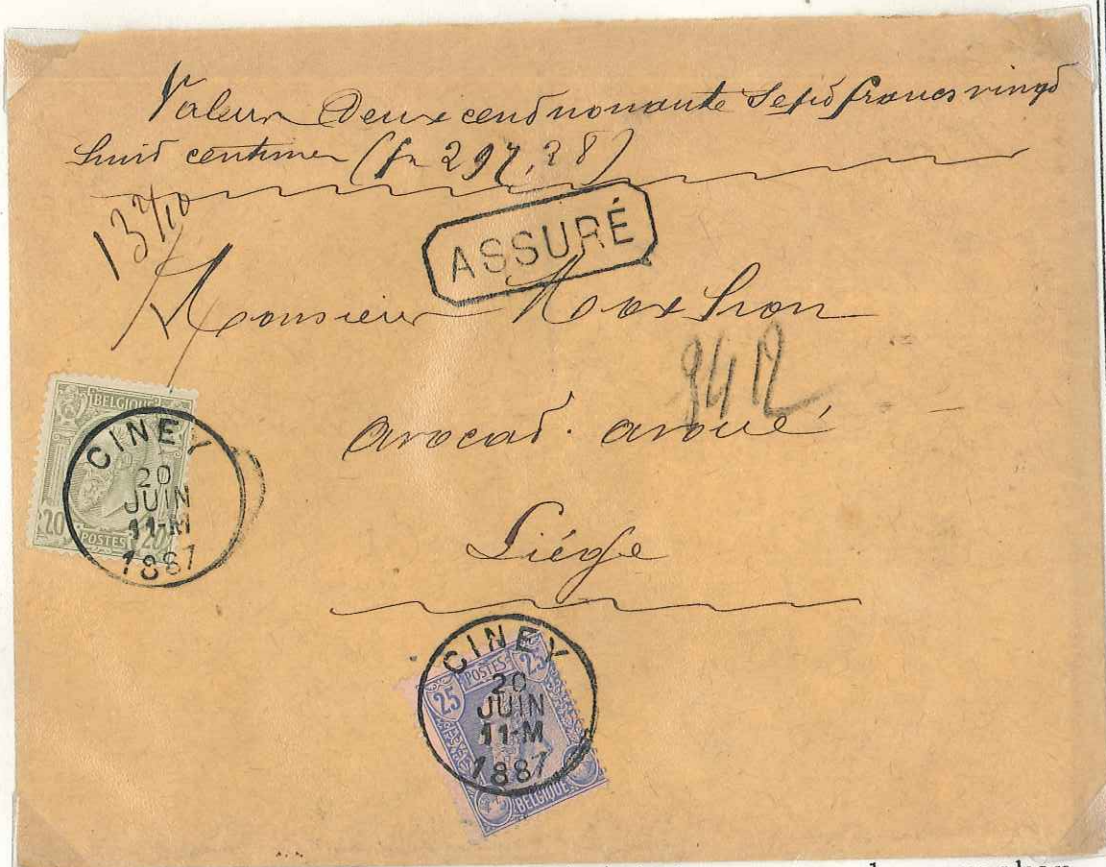 Valeur Deux cent nonante Sept francs vingt
huit centimes (fr 297,28)
ASSURÉ
Monsieur
avocat. avoué
Liége
BELGIQUE
20 POSTES 20
CINEY
20
JUIN
11-M
1887
25 POSTES 25
BELGIQUE
CINEY
20
JUIN
11-M
1887